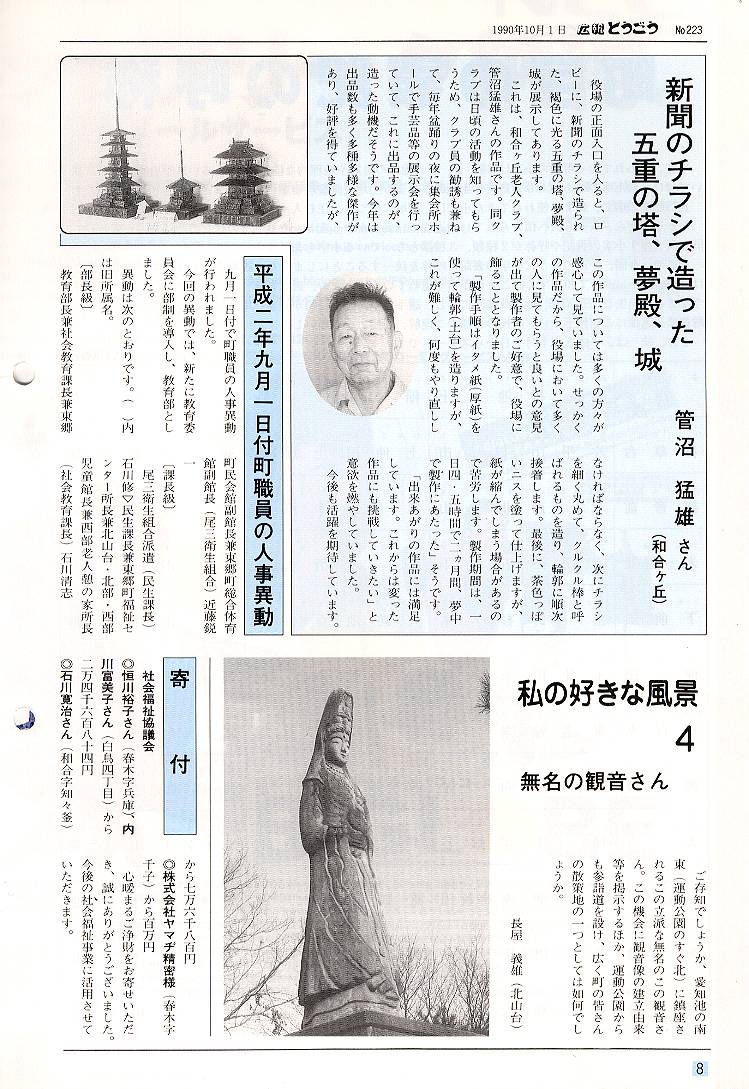 1990年10月1日 広報とうごう No223
新聞のチラシで造った
五重の塔、夢殿、城
管沼 猛雄さん
(和合ヶ丘)
役場の正面入口を入ると、ロ
ビーに、新聞のチラシで造られ
た、褐色に光る五重の塔、夢殿、
城が展示してあります。
これは、和合ヶ丘老人クラブ、
管沼猛雄さんの作品です。同ク
ラブは日頃の活動を知ってもら
うため、クラブ員の勧誘も兼ね
て、毎年盆踊りの夜に集会所ホ
ールで手芸品等の展示会を行っ
ていて、これに出品するのが、
造った動機だそうです。今年は
出品数も多く多種多様な傑作が
あり、好評を得ていましたが、
この作品については多くの方々が
感心して見ていました。せっかく
の作品だから、役場において多く
の人に見てもらうと良いとの意見
が出て製作者のご好意で、役場に
飾ることとなりました。
「製作手順はイタメ紙(厚紙)を
使って輪郭(土台)を造りますが、
これが難しく、何度もやり直しし
なければならなく、次にチラシ
を細く丸めて、クルクル棒と呼
ばれるものを造り、輪郭に順次
接着します。最後に、茶色っぽ
いニスを塗って仕上げますが、
紙が縮んでしまう場合があるの
で苦労します。製作期間は、一
日四・五時間で二カ月間、夢中
で製作にあたった」そうです。
「出来あがりの作品には満足
しています。これからは変った
作品にも挑戦していきたい」と
意欲を燃やしていました。
今後も活躍を期待しています。
平成二年九月一日付町職員の人事異動
九月一日付で町職員の人事異動
が行われました。
今回の異動では、新たに教育委
員会に部制を導入し、教育部とし
ました。
異動は次のとおりです。( )内
は旧所属名。
〔部長級〕
教育部長兼社会教育課長兼東郷
町民会館副館長兼東郷町総合体育
館副館長(尾三衛生組合)近藤鋭
一
〔課長級〕
尾三衛生組合派遣(民生課長)
石川修▽民生課長兼東郷町福祉セ
ンター所長兼北山台・北部・西部
児童館長兼西部老人憩の家所長
(社会教育課長)石川清志
私の好きな風景
4
無名の観音さん
長屋 義雄(北山台)
ご存知でしょうか、愛知池の南
東(運動公園のすぐ北)に鎮座さ
れるこの立派な無名のこの観音さ
ん。この機会に観音像の建立由来
等を掲示するほか、運動公園から
も参詣道を設け、広く町の皆さん
の散策地の一つとしては如何でし
ょうか。
寄付
社会福祉協議会
◎恒川裕子さん(春木字兵庫)、内
川富美子さん(白鳥四丁目)から
二万四千六百八十四円
◎石川寛治さん(和合字知々釜)
から七万六千八百円
◎株式会社ヤマヂ精密様(春木字
千子)から百万円
心暖まるご浄財をお寄せいただ
き、誠にありがとうございました。
今後の社会福祉事業に活用させて
いただきます。
8